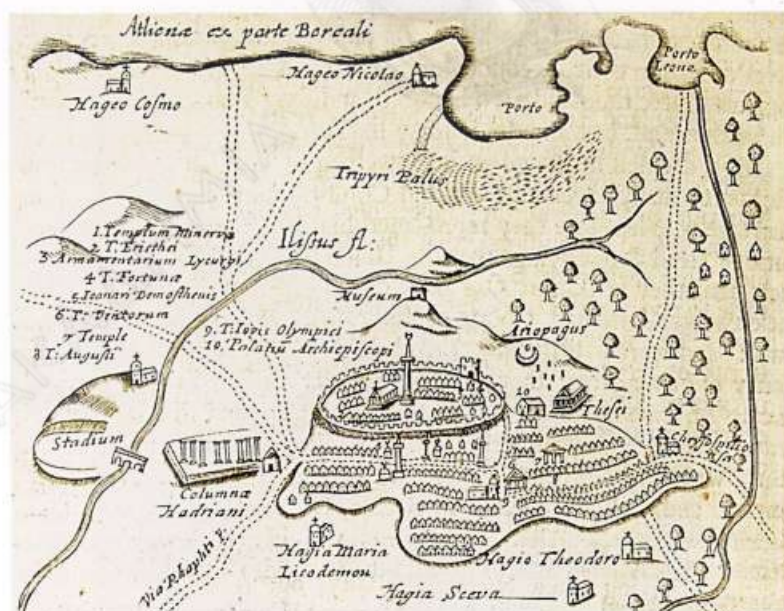 Athenæ ex parte Boreali
Hageo Cosmo
Hageo Nicolao
Porto
Porto
Leone
Tripyri Palus
1. Templum Minervæ
2 T. Ericthei
3 Armamentarium Lycurgi
4 T. Fortunæ
6 T. Ventorum
7 Temple
8 T. Augusti
Ilissus fl:
Museum
9. T. Iovis Olympici
10. Palatiũ Archiepiscopi
Ariopagus
10
Thesei
Stadium
Columnæ
Hadriani
Hagia Maria
Licodemou
Hagio Theodoro
Hagia Sceva